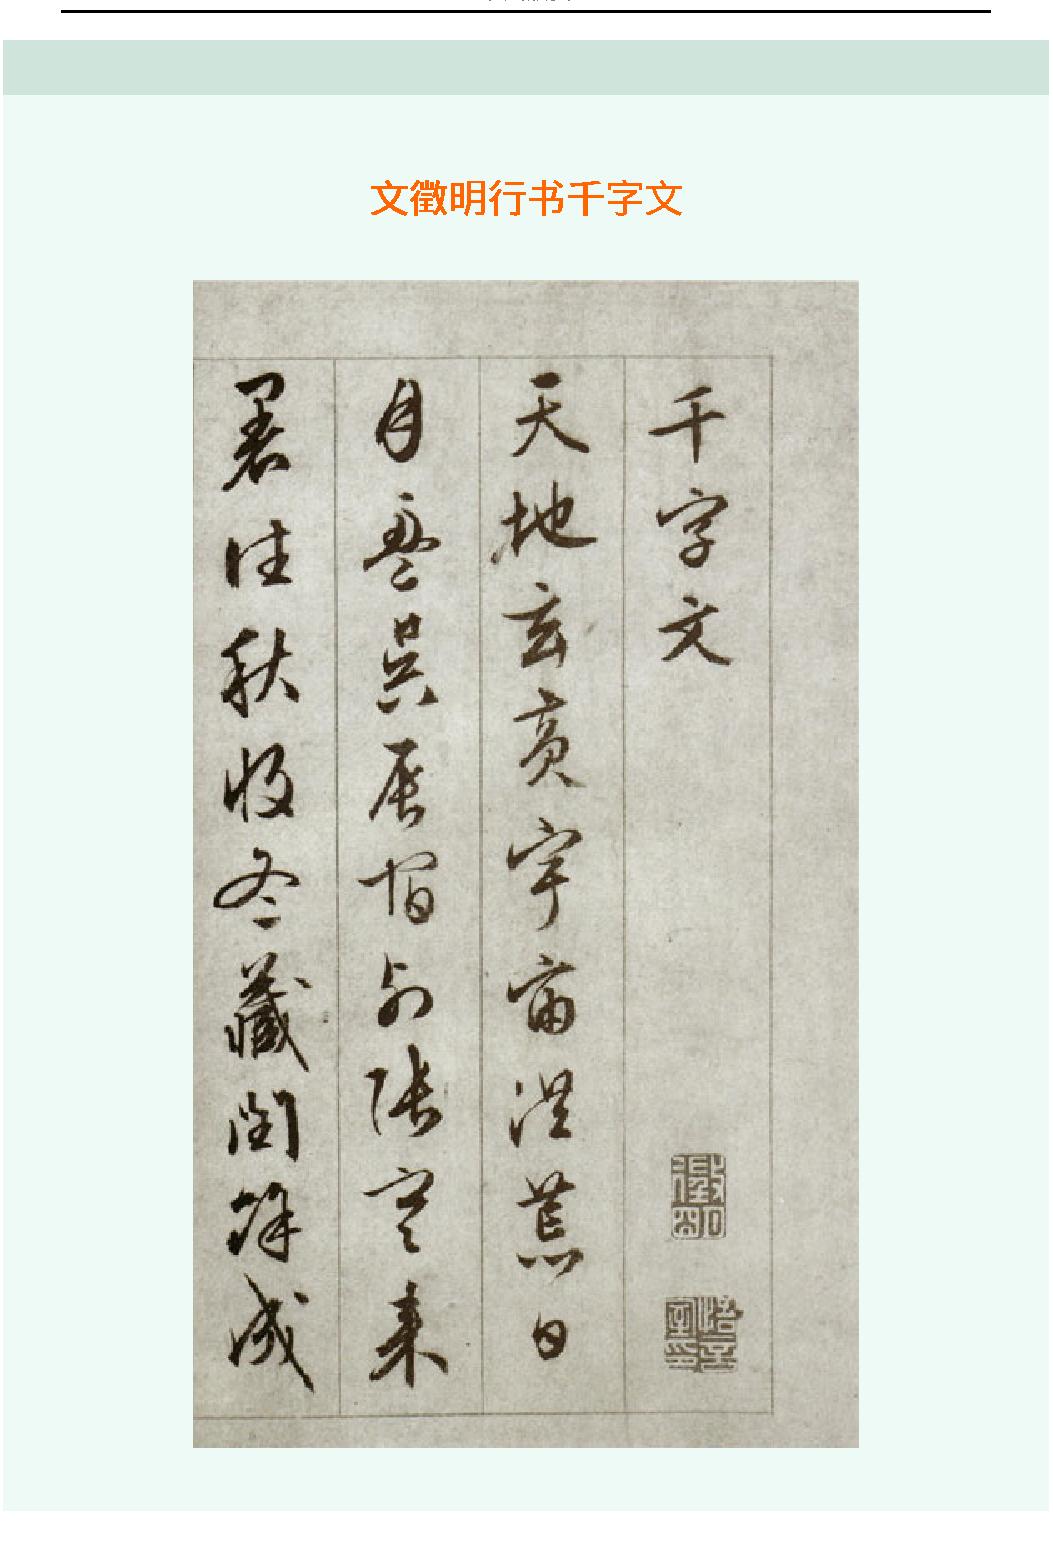 文徵明行书千字文
千字文
天地玄黄宇宙洪荒日
月盈昃辰宿列张寒来
暑往秋收冬藏闰馀成